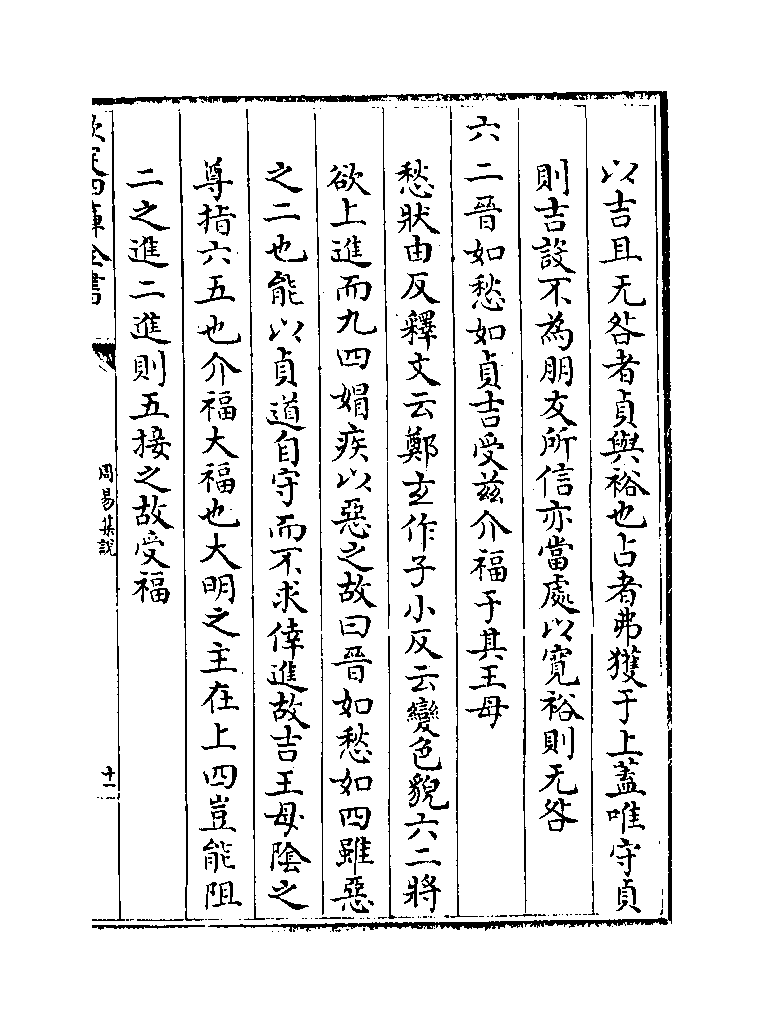 以吉且无咎者貞與裕也占者弗獲于上蓋唯守貞
則吉設不為朋友所信亦當處以寛裕則无咎
六二晉如愁如貞吉受兹介福于其王母
愁狀由反釋文云鄭𤣥作子小反云變色貌六二將
欲上進而九四娼疾以惡之故曰晉如愁如四雖惡
之二也能以貞道自守而不求倖進故吉王母隂之
尊指六五也介福大福也大明之主在上四豈能阻
二之進二進則五接之故受福
欽定四庫全書
周易集說
十一